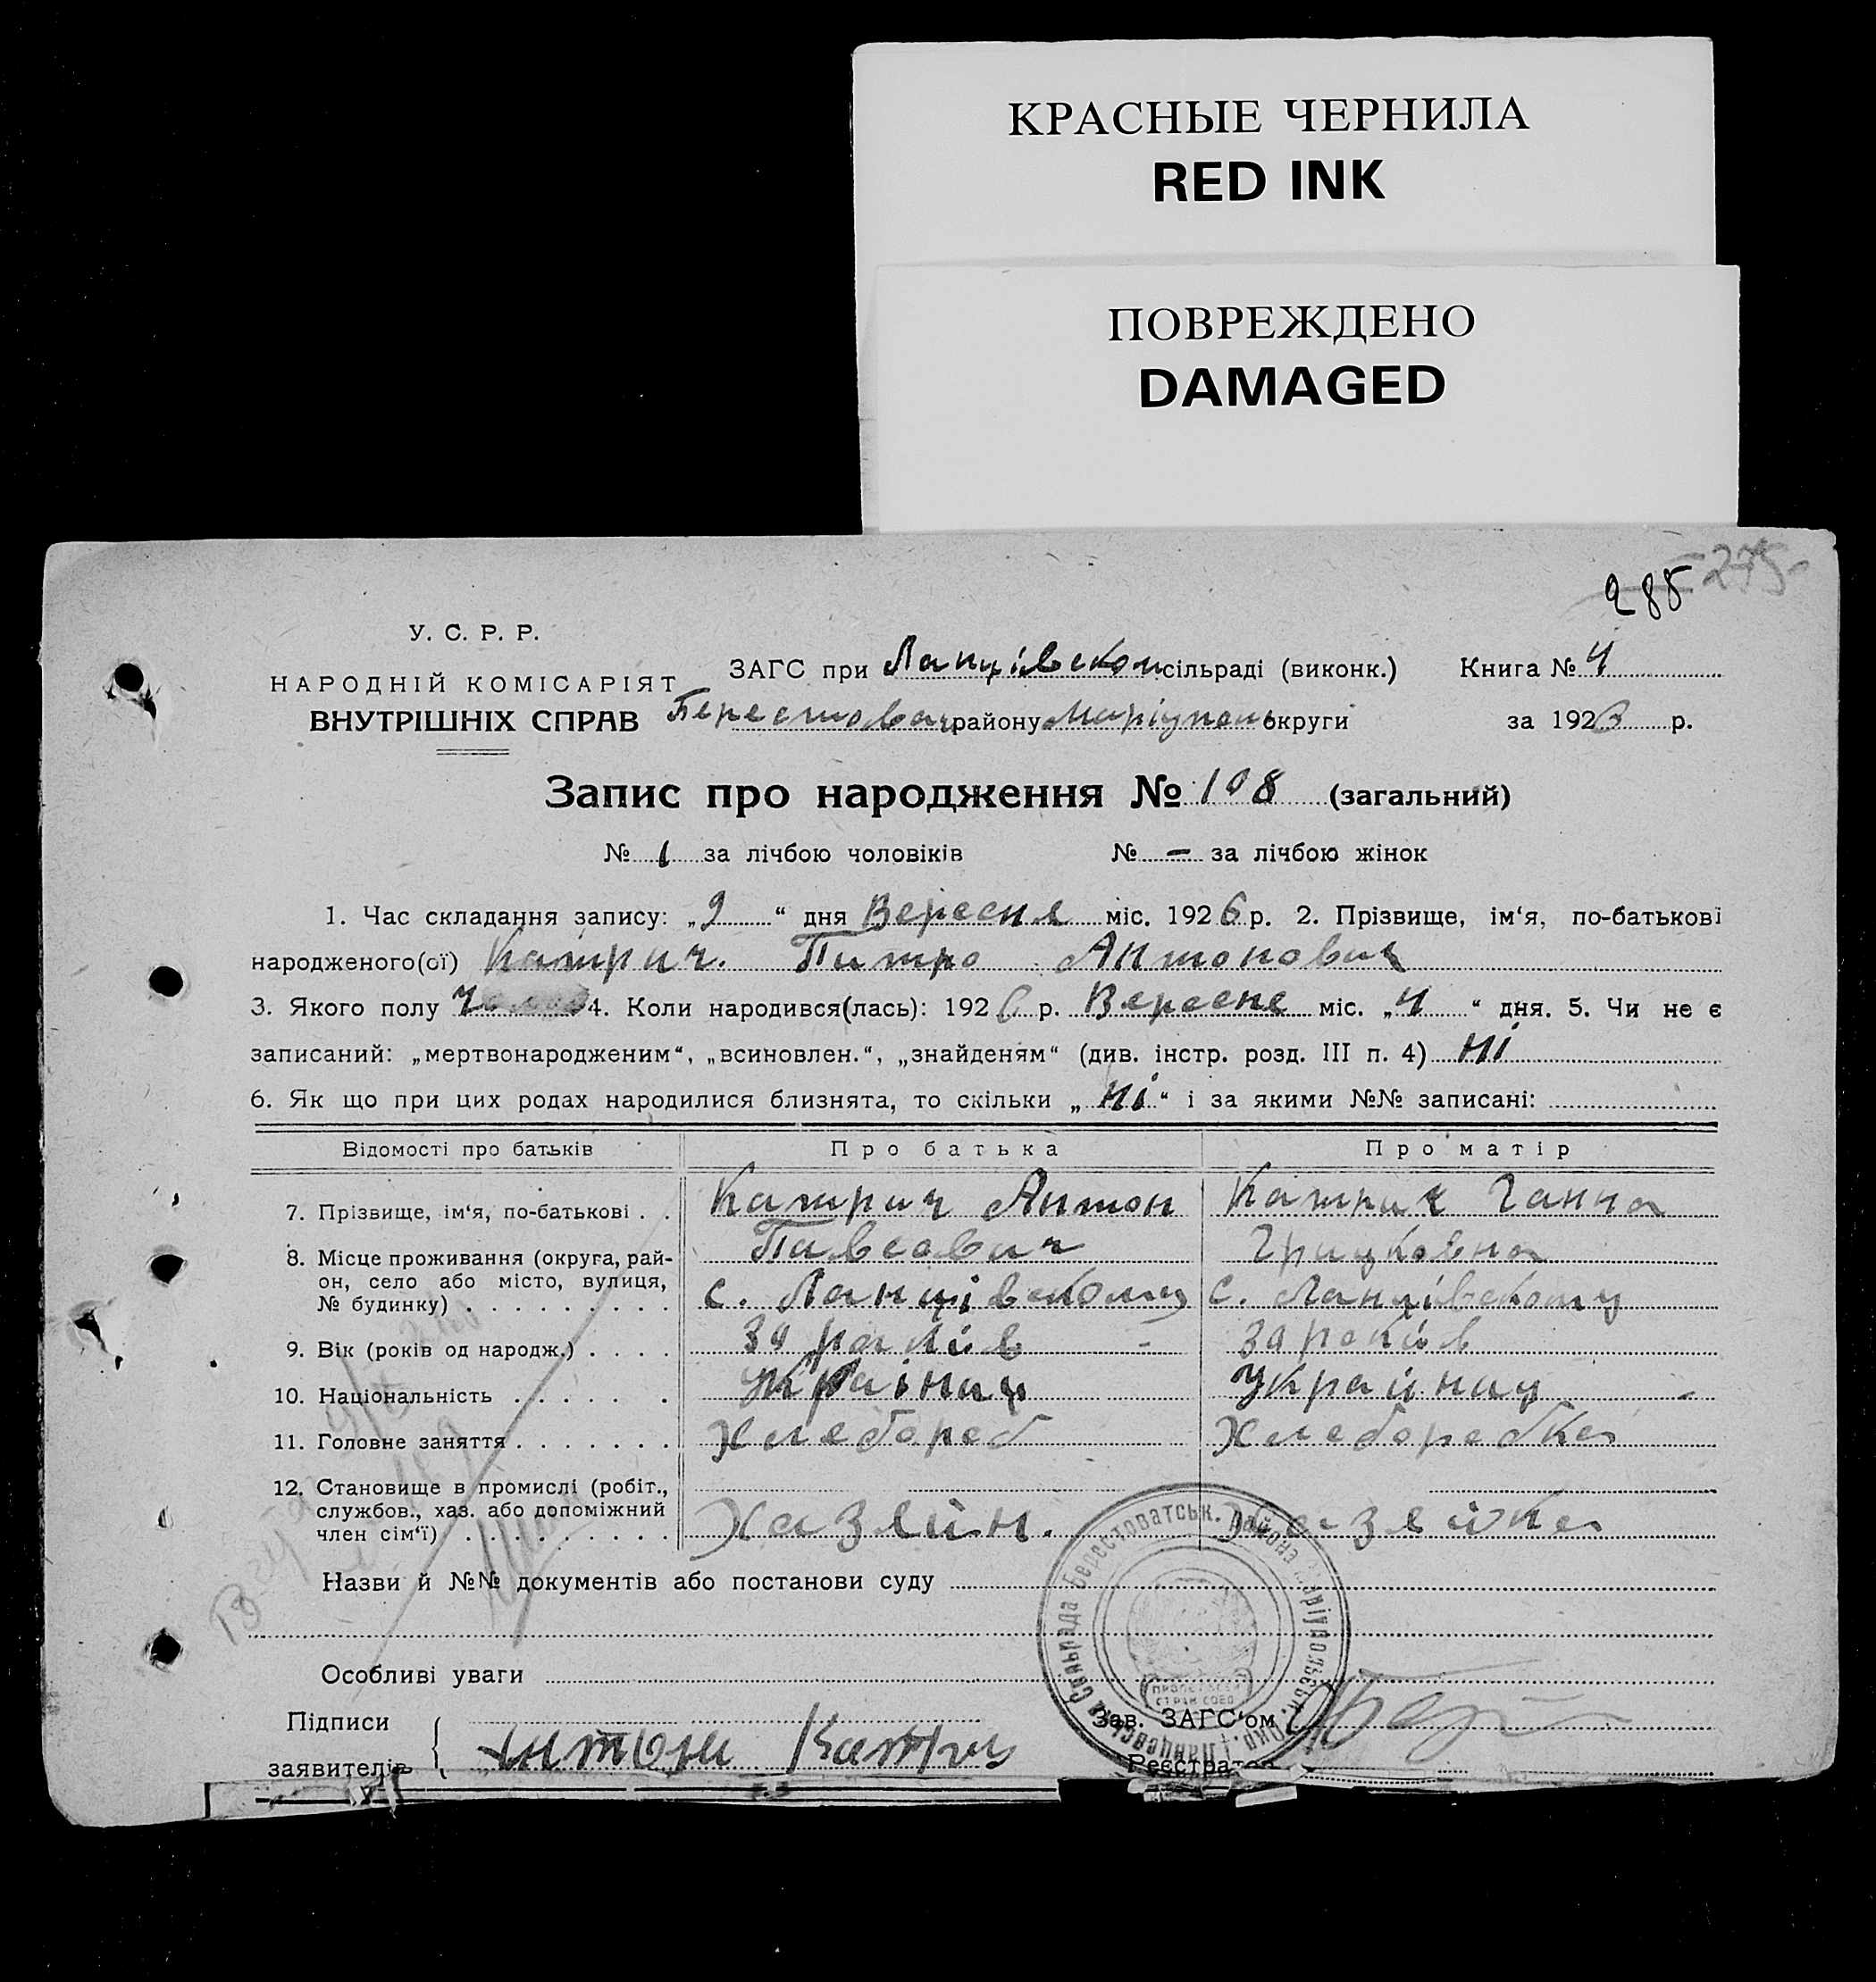 КРАСНЫЕ ЧЕРНИЛА
RED INK
ПОВРЕЖДЕНО
DAMAGED
275
285
У. С. Р. Р.
НАРОДНІЙ КОМІСАРІЯТ
ВНУТРІШНІХ СПРАВ
ЗАГС при Ланцівском сільраді (виконк.) Книга № 4
Берестовац району Маріуполь округи за 192 р.
Запис про народження № 108 (загальний)
№ 1 за лічбою чоловіків № — за лічбою жінок
1. Час складання запису: „9“ дня Вересня міс. 1926 р. 2. Прізвище, ім‘я, по-батькові
народженого(ої) Катрич. Питро Антонович
3. Якого полу 4. Коли народився(лась): 1926 р. Вересне міс. „4“ дня. 5. Чи не є
записаний: „мертвонародженим“, „всиновлен.“, „знайденям“ (див. інстр. розд. III п. 4) Ні
6. Як що при цих родах народилися близнята, то скільки „Ні“ і за якими №№ записані:
Відомості про батьків Про батька Про матір
7. Прізвище, ім‘я, по-батькові . . Катрич Антон Катрич Ганна
Павлович Грицковна
8. Місце проживання (округа, рай-
он, село або місто, вулиця,
№ будинку) . . . . . . . . . с. Ланцівскому с. Ланцівскому
9. Вік (років од народж.) . . . . років років
10. Національність . . . . . . Украінец Украйнец
11. Головне заняття . . . . . . . Хлебороб Хлеборобка
12. Становище в промислі (робіт.,
службов., хаз. або допоміжний
член сім‘ї) . . . . . . . . . Хазяин. Хазяйка
Назви й №№ документів або постанови суду
Особливі уваги
Підписи
заявителів Антон Катрич
Зав. ЗАГС‘ом
Реєстратор
Сільрада Берестоватськ. района Маріупольськ. Окр.
ПРОЛЕТ ВСЕЙ
СТРАН СОЕД